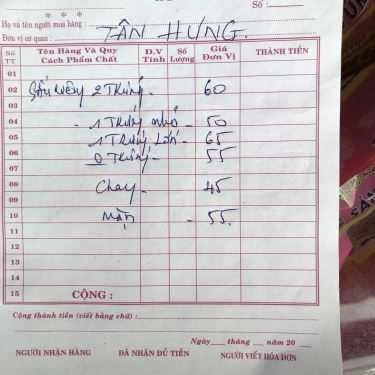 Số :
* * *
Họ và tên người mua hàng :
TÂN HƯNG
Đơn vị cơ quan :
Số TT Tên Hàng Và Quy Cách Phẩm Chất Đ.V Tính Số Lượng Giá Đơn Vị THÀNH TIỀN
01
02 2 Trứng - 60
03
04 - 1 Trứng nhỏ - 50
05 1 Trứng Lớn - 65
06 0 Trứng - 55
07
08 Chay - 45
09
10 Mặn - 55.
11
12
13
14
15 CỘNG :
Cộng thành tiền (viết bằng chữ) :
Ngày tháng năm 20
NGƯỜI NHẬN HÀNG ĐÃ NHẬN ĐỦ TIỀN NGƯỜI VIẾT HÓA ĐƠN